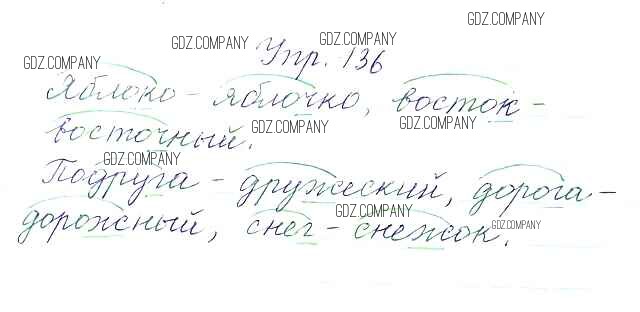 GDZ.COMPANY
GDZ.COMPANY GDZ.COMPANY
Упр. 136
GDZ.COMPANY
Яблоко - яблочко, восток -
восточный. GDZ.COMPANY GDZ.COMPANY
GDZ.COMPANY
Подруга - дружеский, дорога -
дорожный, снег - снежок.
GDZ.COMPANY GDZ.COMPANY